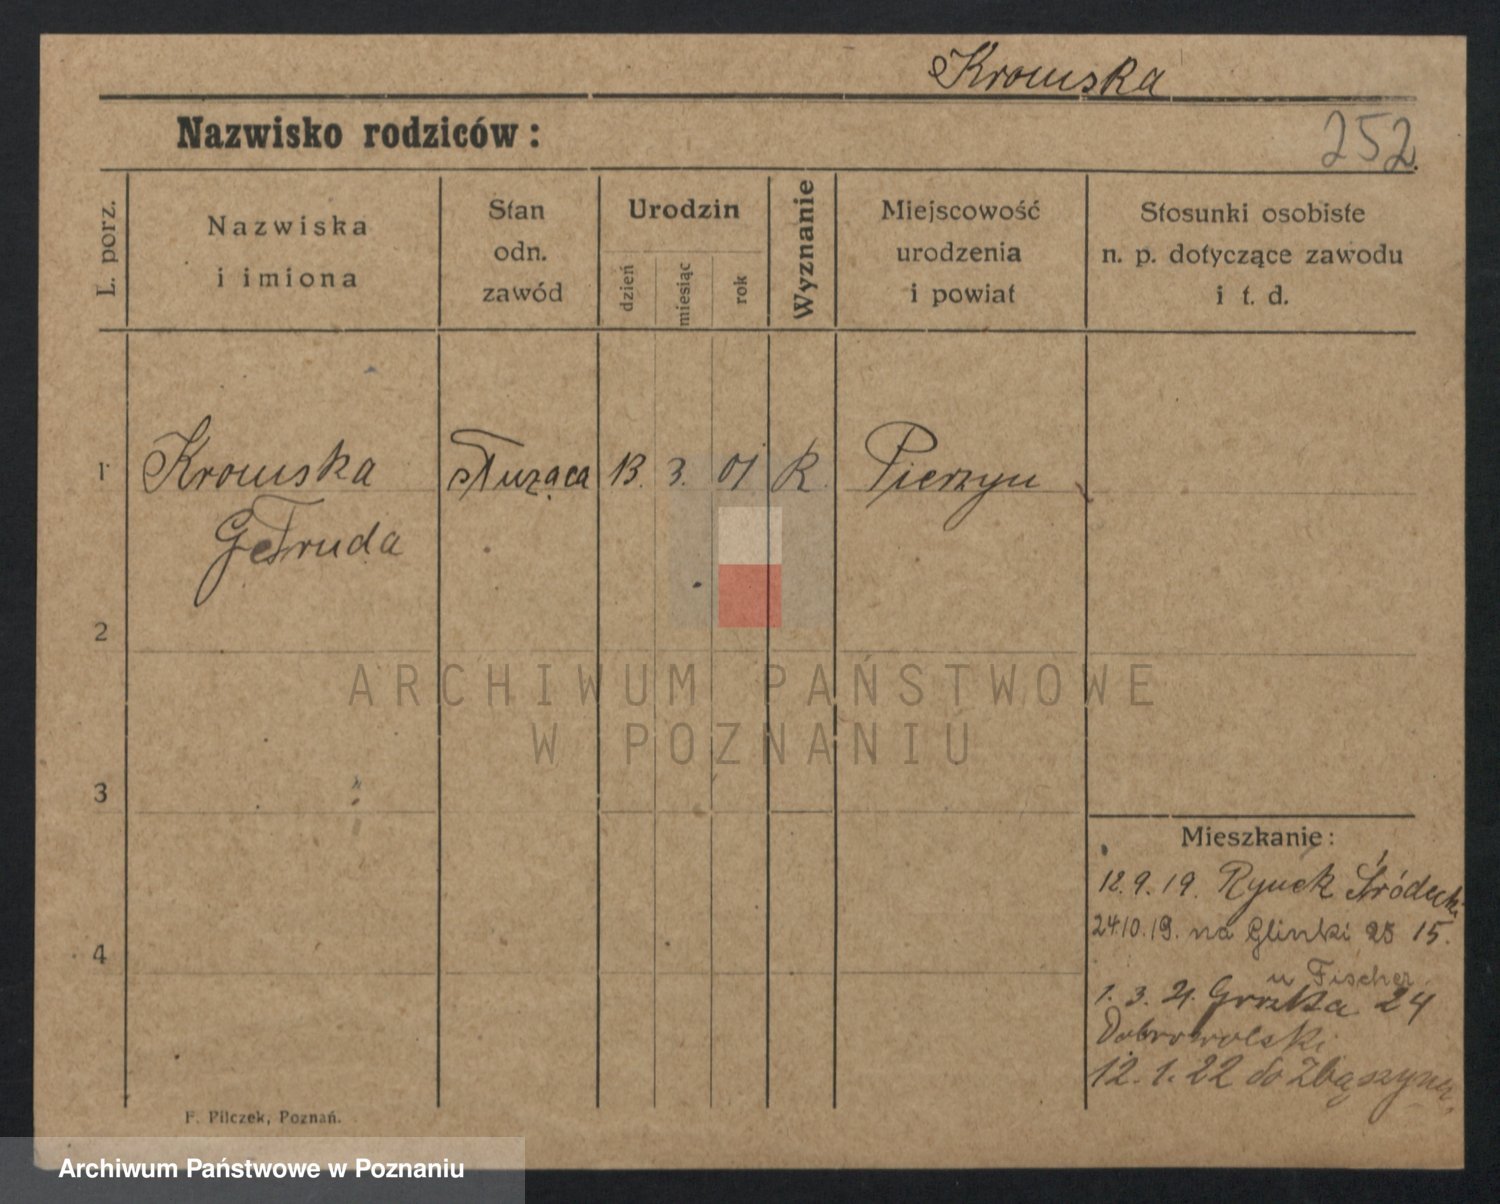 Krouska
Nazwisko rodziców:
252.
L. porz.
Nazwiska
i imiona
Stan
odn.
zawód
Urodzin
dzień
miesiąc
rok
Wyznanie
Miejscowość
urodzenia
i powiat
Stosunki osobiste
n. p. dotyczące zawodu
i t. d.
1 Krouska służąca 13. 3. 01 R
Getruda
2
ARCHIWUM PAŃSTWOWE
W POZNANIU
3
Mieszkanie:
12.9.19. Rynek Śródecki
24.10.19. na Glinki 15.
u Fischer
4
1. 3. 21. 24
Dobrowolski
12. 1. 22 do Zbąszynia
F. Pilczek, Poznań.
Archiwum Państwowe w Poznaniu